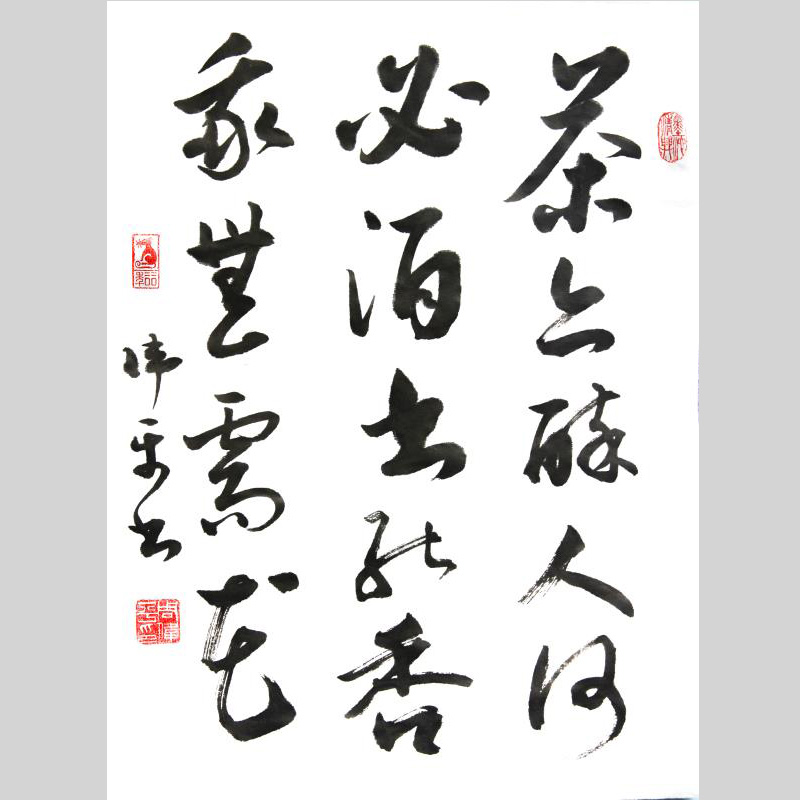 茶亦醉人何
必酒书能香
我無需花
伟平书